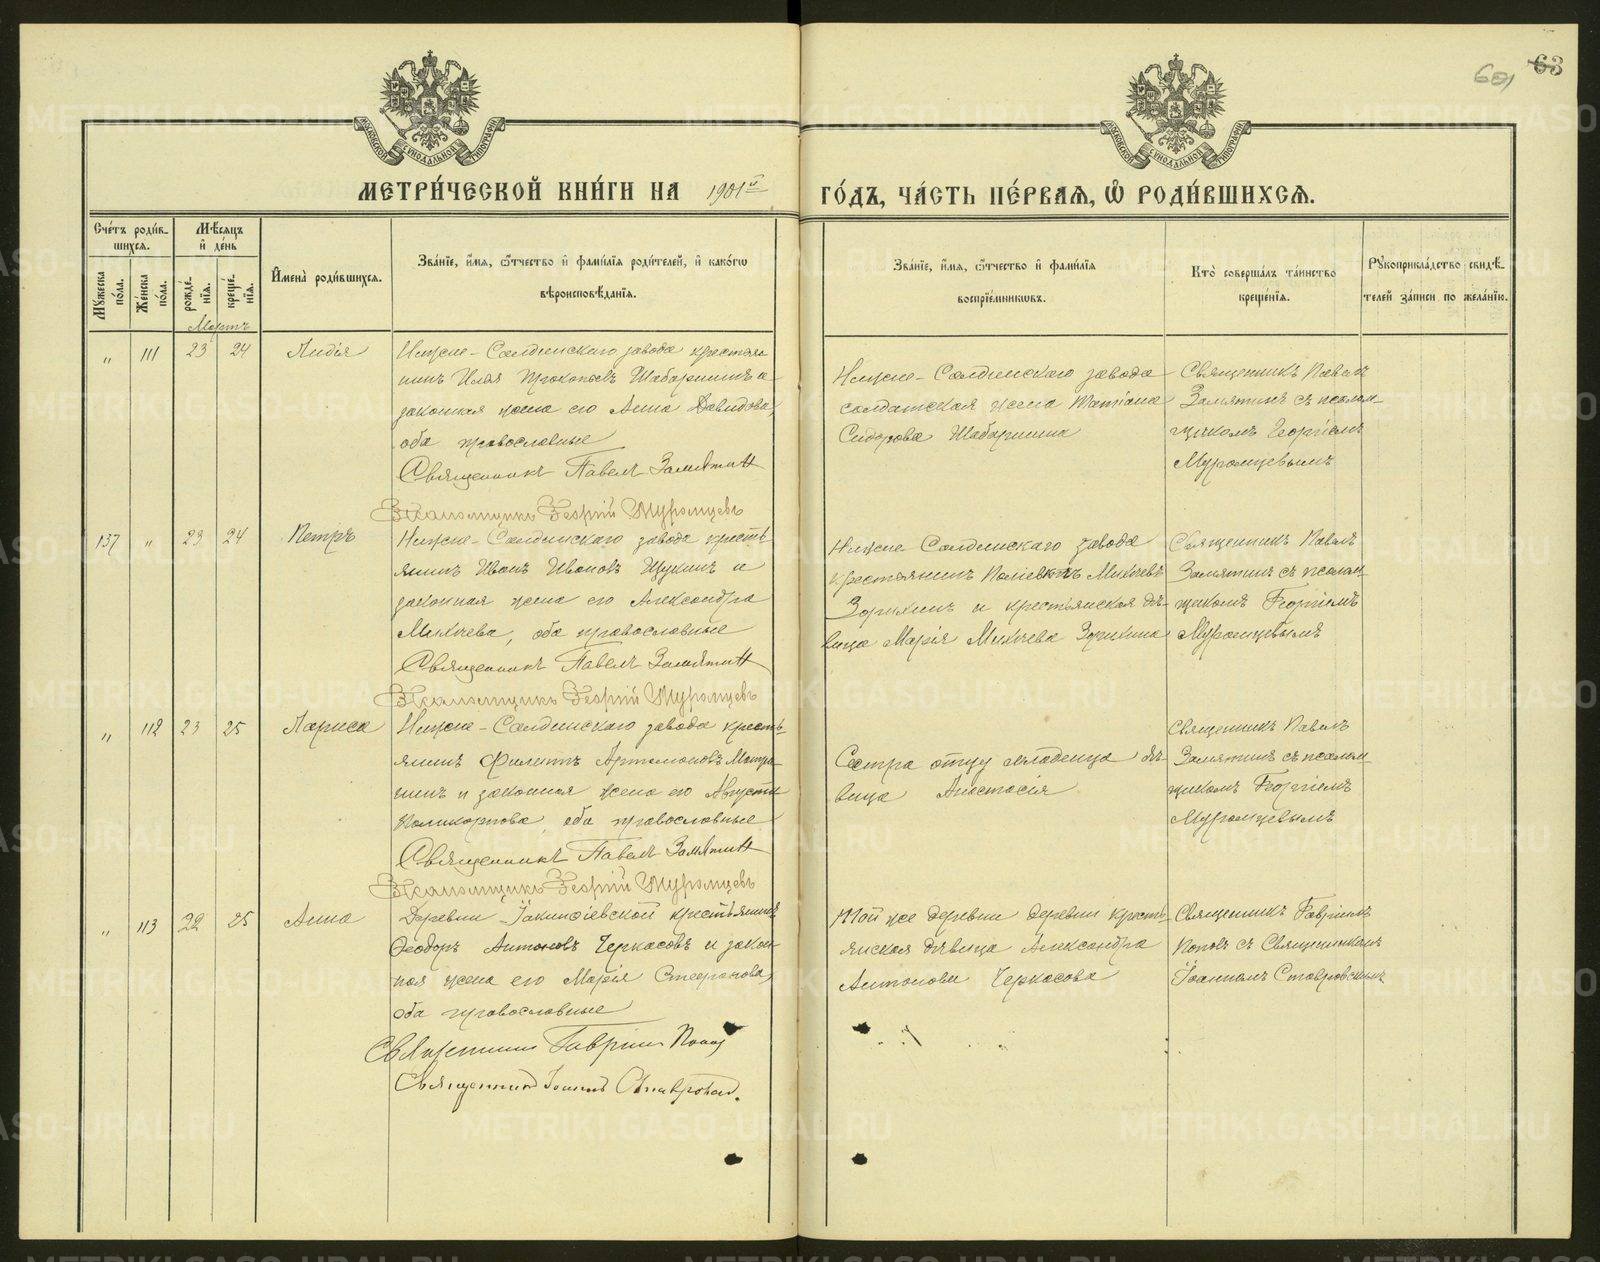 63
МЕТРИ́ЧЕСКОЙ КНИ́ГИ НА 1901й ГО́ДЪ, ЧА́СТЬ ПЕ́РВАѦ, Ѽ РОДИ́ВШИХСѦ.
МОСКОВСКОЙ СѴНОДАЛЬНОЙ ТИПОГРАФІИ
МОСКОВСКОЙ СѴНОДАЛЬНОЙ ТИПОГРАФІИ
Сче́тъ роди́в-
шихсѧ.
Мꙋжеска по́ла.
Же́нска по́ла.
Мѣ́сѧцъ
и҆ де́нь
рожде́-
нїѧ.
креще́-
нїѧ.
И҆мена̀ роди́вшихсѧ.
Зва́нїе, и҆́мѧ, ѻ҆́тчество и҆ фами́лїѧ роди́телей, и҆ како́гѡ
вѣроисповѣ́данїѧ.
Зва́нїе, и҆́мѧ, ѻ҆́тчество и҆ фами́лїѧ
воспрїе́мникѡвъ.
Кто̀ соверша́лъ та́инство
креще́нїѧ.
Рꙋкоприкла́дство свидѣ́-
телей за́писи по жела́нїю.
Мартъ
„ 111 23 24 Лидія
Нижне-Салдинскаго завода крестья-
нинъ Илья Прокопьевъ Шабаршинъ и
законная жена его Анна Давидова,
оба православные
Священникъ Павелъ Замятин
Псаломщикъ Георгій Муромцевъ
Нижне-Салдинскаго завода
солдатская жена Татіана
Сидорова Шабаршина
Священникъ Павелъ
Замятинъ съ псалом-
щикомъ Георгіемъ
Муромцевымъ
137 „ 23 24 Петръ
Нижне-Салдинскаго завода кресть-
янинъ Иванъ Ивановъ Щукинъ и
законная жена его Александра
Михеева, оба православные
Священникъ Павелъ Замятин
Псаломщикъ Георгій Муромцевъ
Нижне-Салдинскаго завода
крестьянинъ Поліевктъ Михеевъ
Зорихинъ и крестьянская дѣ-
вица Марія Михеева Зорихина
Священникъ Павелъ
Замятинъ съ псалом-
щикомъ Георгіемъ
Муромцевымъ
„ 112 23 25 Лариса
Нижне-Салдинскаго завода кресть-
янинъ Филиппъ Артамоновъ
и законная жена его Августа
Поликарпова, оба православные
Священникъ Павелъ Замятин
Псаломщикъ Георгій Муромцевъ
Сестра отцу младенца дѣ-
вица Анастасія
Священникъ Павелъ
Замятинъ съ псалом-
щикомъ Георгіемъ
Муромцевымъ
„ 113 22 25 Анна
Деревни Іакинѳіевской крестьянинъ
Ѳеодоръ Антоновъ Черкасовъ и закон-
ная жена его Марія Стефанова,
оба православные
Священникъ Гавріилъ Попов
Священникъ Іоаннъ Ставровскій.
Той же деревни деревни кресть-
янская дѣвица Александра
Антонова Черкасова
Священникъ Гавріилъ
Поповъ съ Священникомъ
Іоанномъ Ставровскимъ
METRIKI.GASO-URAL.RU